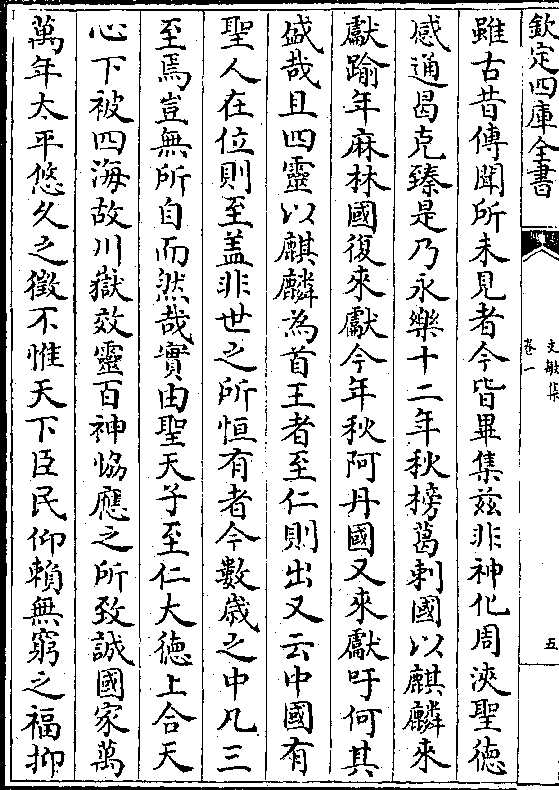 欽定四庫全書
文敏集
卷一
五
雖古昔傳聞所未見者今皆畢集茲非神化周浹聖德
感通曷克臻是乃永樂十二年秋榜葛剌國以麒麟來
獻踰年麻林國復來獻今年秋阿丹國又來獻吁何其
盛哉且四靈以麒麟為首王者至仁則出又云中國有
聖人在位則至盖非世之所恒有者今數歳之中凡三
至焉豈無所自而然哉實由聖天子至仁大德上合天
心下被四海故川嶽效靈百神恊應之所致誠國家萬
萬年太平悠久之徵不惟天下臣民仰賴無窮之福抑